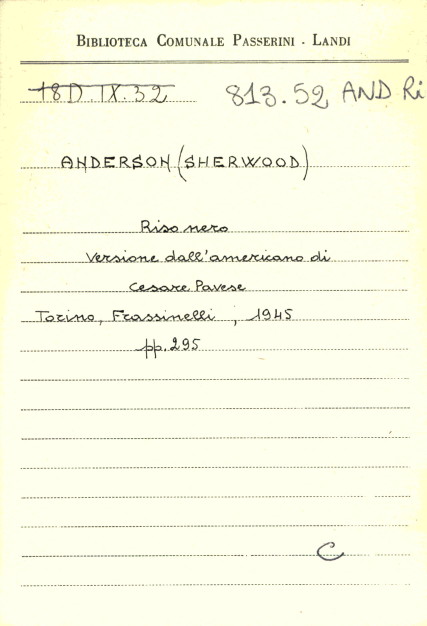 BIBLIOTECA COMUNALE PASSERINI - LANDI
18D.IX.32 813.52 AND Ri
ANDERSON (SHERWOOD)
Riso nero
Versione dall'americano di
Cesare Pavese
Torino, Frassinelli, 1945
pp. 295
C